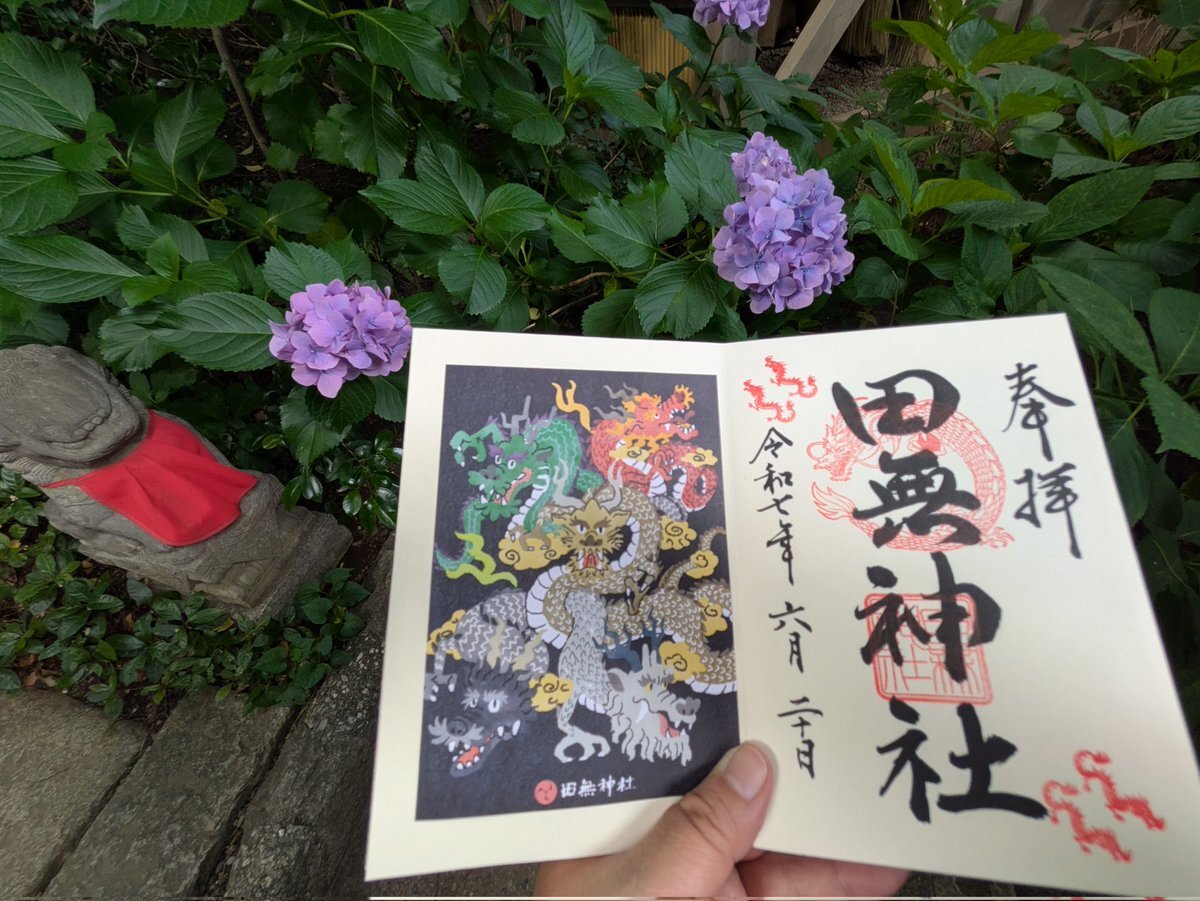 奉拝
田無神社
令和七年 六月 二十日
田無神社